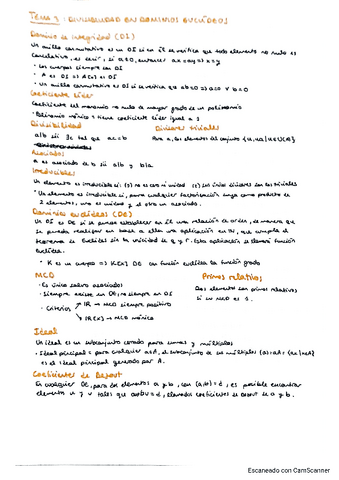 TEMA 3: DIVISIBILIDAD EN DOMINIOS EUCLÍDEOS
Dominio de integridad (DI)
Un anillo conmutativo es un DI si en él se verifica que todo elemento no nulo es
cancelativo, es decir, si a≠0, entonces ax=ay → x=y
· Los cuerpos siempre son DI
· A es DI => A[x] es DI
· Un anillo conmutativo es DI si se verifica que ab=0 => a=0 ∨ b=0
Coeficiente líder
Coeficiente del monomio no nulo de mayor grado de un polinomio
· Polinomio mónico = tiene coeficiente líder igual a 1
Divisibilidad Divisores triviales
a|b si ∃c tal que ac=b Para a, los elementos del conjunto
Asociados
a es asociado de b si a|b y b|a
Irreducibles
Un elemento es irreducible si: (1) no es cero ni unidad (2) sus únicos divisores son los triviales
· Un elemento es irreducible si, para cualquier factorización suya como producto de
2 elementos, uno es unidad y el otro un asociado.
Dominios euclídeos (DE)
Un DI es DE si se puede establecer en él una relación de orden, de manera que
se pueda realizar en base a ella una aplicación en ℕ, que cumpla el
teorema de Euclides sin la unicidad de q y r. Esta aplicación se llamará función
euclídea.
· K es un cuerpo => K[x] DE con función euclídea la función grado
MCD Primos relativos
· Es único salvo asociados Dos elementos son primos relativos
· Siempre existe en DE; no siempre en DI si su MCD es 1.
· Criterios
ℤ → MCD positivo
K[x] → MCD mónico
Ideal
Un ideal es un subconjunto cerrado para sumas y múltiplos
· Ideal principal = para cualquier a∈A, el subconjunto de sus múltiplos (a)=aA={ax|x∈A}
es el ideal principal generado por A.
Coeficientes de Bezout
En cualquier DE, para dos elementos a y b, con (a,b)=d, es posible encontrar
elementos u y v tales que au+bv=d, llamados coeficientes de Bezout de a y b.
Escaneado con CamScanner